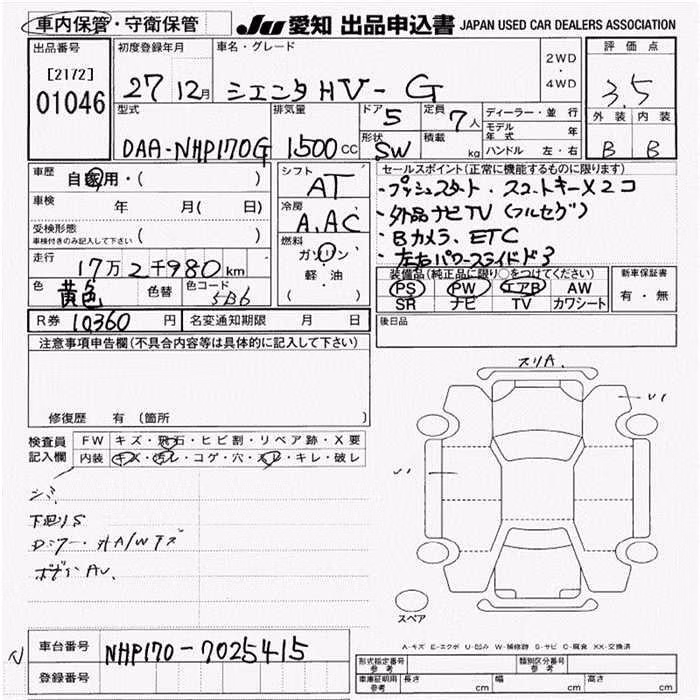 車内保管・守衛保管
JU 愛知 出品申込書 JAPAN USED CAR DEALERS ASSOCIATION
出品番号 初度登録年月 車名・グレード 評価点
[2172]
01046
27 12月 シエンタHV-G 2WD・4WD 3.5
型式 排気量 ドア 5 定員 7人 ディーラー・並行 外装 内装
モデル年式 年
DAA-NHP170G 1500cc 形状 SW 積載 kg ハンドル 左・右 B B
車歴 自家用・( ) シフト AT セールスポイント(正常に機能するものに限ります)
・プッシュスタート・スマートキーX2コ
車検 年 月( 日) 冷房 A.AC
・外品ナビTV(フルセグ)
受検形態 ( )
車検付きのみ記入して下さい
・Bカメラ、ETC
燃料 ガソリン
・左右パワースライドドア
走行 17万2千980km
軽・油
( )
装備品(純正品に限り○をつけてください) 新車保証書
色 黄色 色替 色コード 5B6
PS PW エアB AW 有・無
SR ナビ TV カワシート
R券 10360 円 名変通知期限 月 日
後日品
注意事項申告欄(不具合内容等は具体的に記入して下さい)
スリA.
修復歴 有(箇所
検査員 FW キズ・飛石・ヒビ割・リペア跡・X要
記入欄 内装 キズ・汚レ・コゲ・穴・スレ・キレ・破レ
シミ
下廻りS
スペア
A-キズ E-エクボ U-凹み W-補修跡 S-サビ C-腐食 XX-交換済
車台番号 NHP170-7025415
登録番号
形式指定番号 参考 類別区分番号 参考
車庫証明用 参考 長さ cm 幅 cm 高さ cm